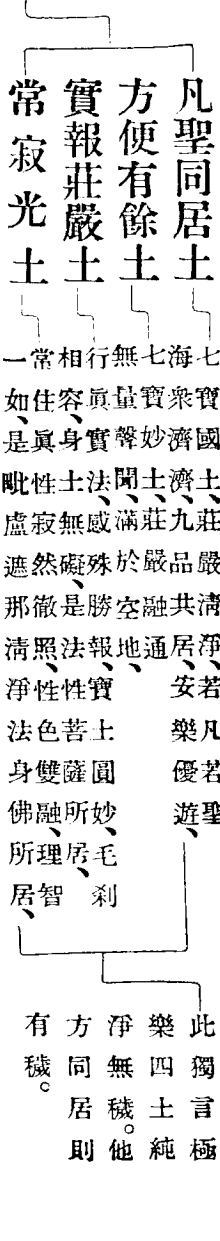 凡聖同居土
方便有餘土
實報莊嚴土
常寂光土
七寶國土、莊嚴清淨、若凡若聖
海衆濟濟、九品共居、安樂優遊、
七寶妙土、莊嚴融通
無量聲聞、滿於空地、
行眞實法、感殊勝報、寶土圓妙、毛刹
相容、身土無礙、是法性菩薩所居、
常住眞性寂然徹照、性色雙融、理智
一如、是毗盧遮那清淨法身佛所居、
此獨言極
樂四土純
淨無穢。他
方同居則
有穢。